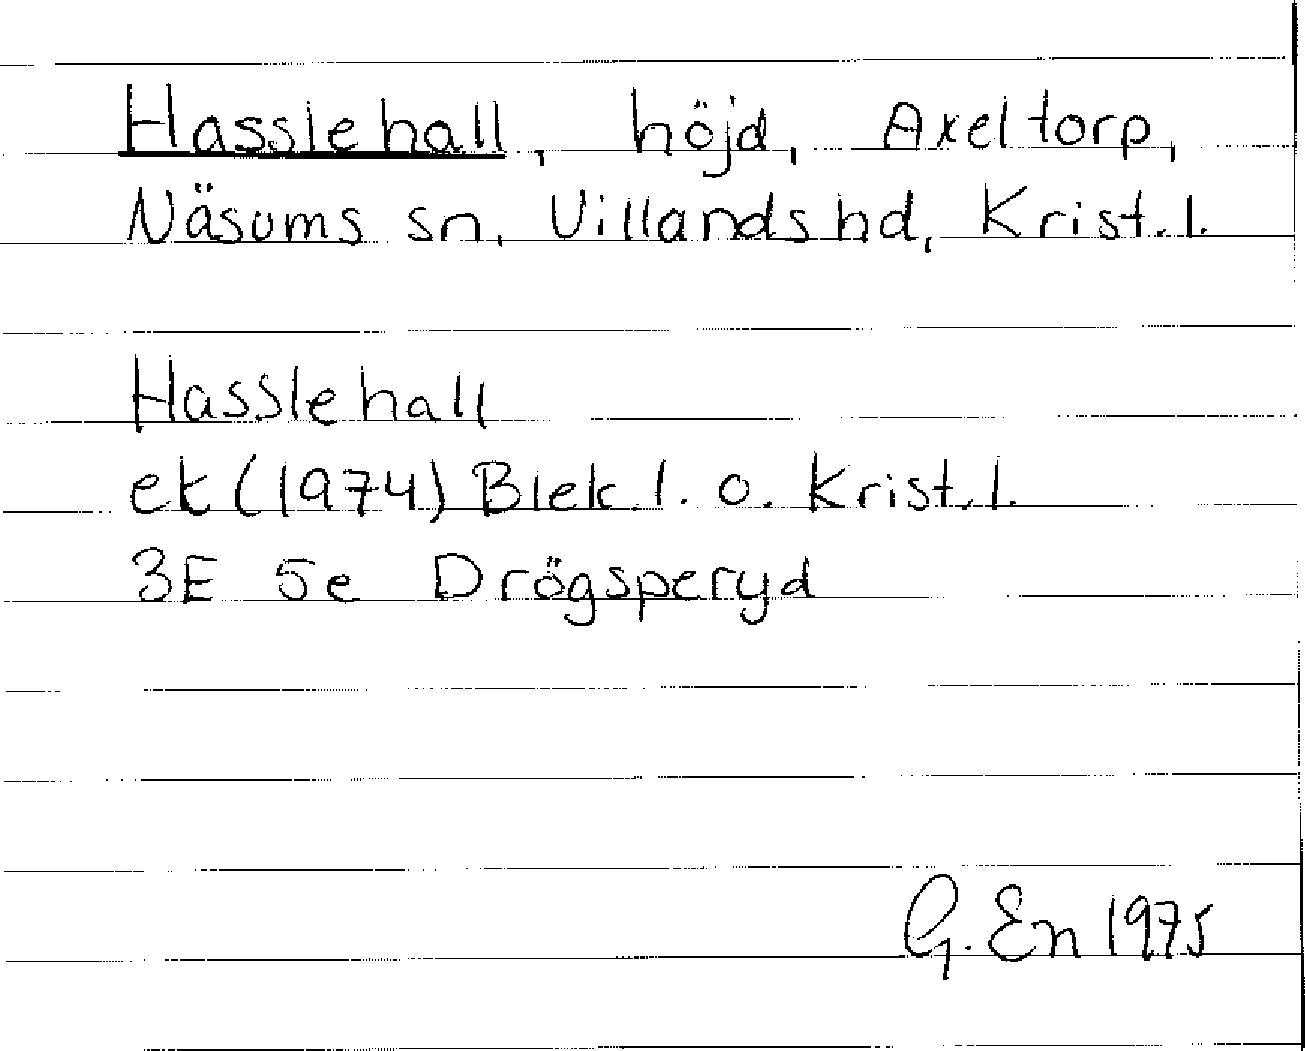 Hasslehall, höjd, Axeltorp,
Näsums sn, Villands hd, Krist. l.
Hasslehall
ek (1974) Blek. l. o. Krist. l.
3E 5e Drögsperyd
G. En 1975